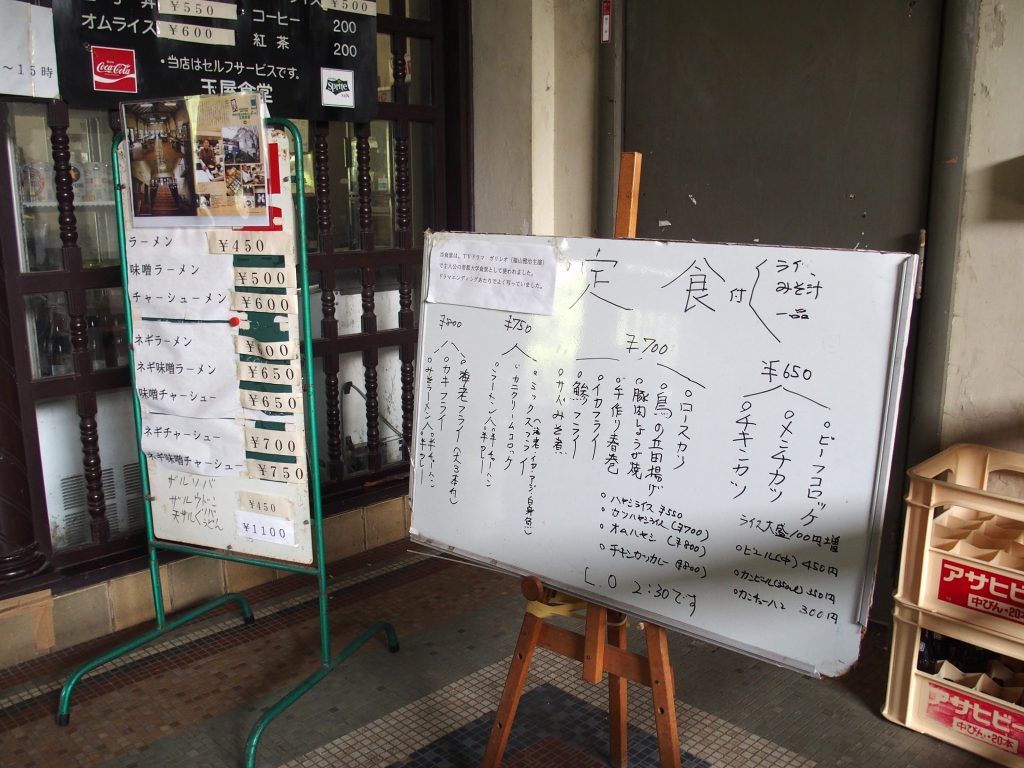 ¥550
¥500
オムライス ¥600
コーヒー 200
紅茶 200
・当店はセルフサービスです。
玉屋食堂
Coca-Cola
Sprite
～15時
ラーメン ¥450
味噌ラーメン ¥500
チャーシューメン ¥600
ネギラーメン ¥600
ネギ味噌ラーメン ¥650
味噌チャーシュー ¥650
ネギチャーシュー ¥700
ネギ味噌チャーシュー ¥750
ザルソバ
ザルウドン ¥450
天ザル ¥1100
当食堂は、TVドラマ ガリレオ（福山雅治主演）
で主人公の帝都大学食堂として使われました。
ドラマエンディングあたりでよく写っていました。
定食付
ライス
みそ汁
一品
¥650
・ビーフコロッケ
・メンチカツ
・チキンカツ
¥700
・ロースカツ
・鳥の立田揚げ
・豚肉しょうが焼
・手作り春巻
・イカフライ
・鯵フライ
・サバみそ煮
¥750
・ミックスフライ
・カニクリームコロッケ
¥800
・海老フライ(大3本丸)
・カキフライ
ライス大盛100円増
・ビール(中) 450円
・カンビール(350ml) 350円
・カンチューハイ 300円
・ハヤシライス ¥550
・カツハヤシライス (¥700)
・オムハヤシ (¥800)
・チキンカツカレー (¥800)
L.O 2:30です
アサヒビー
中びん・20本
アサヒビー
中びん・20本